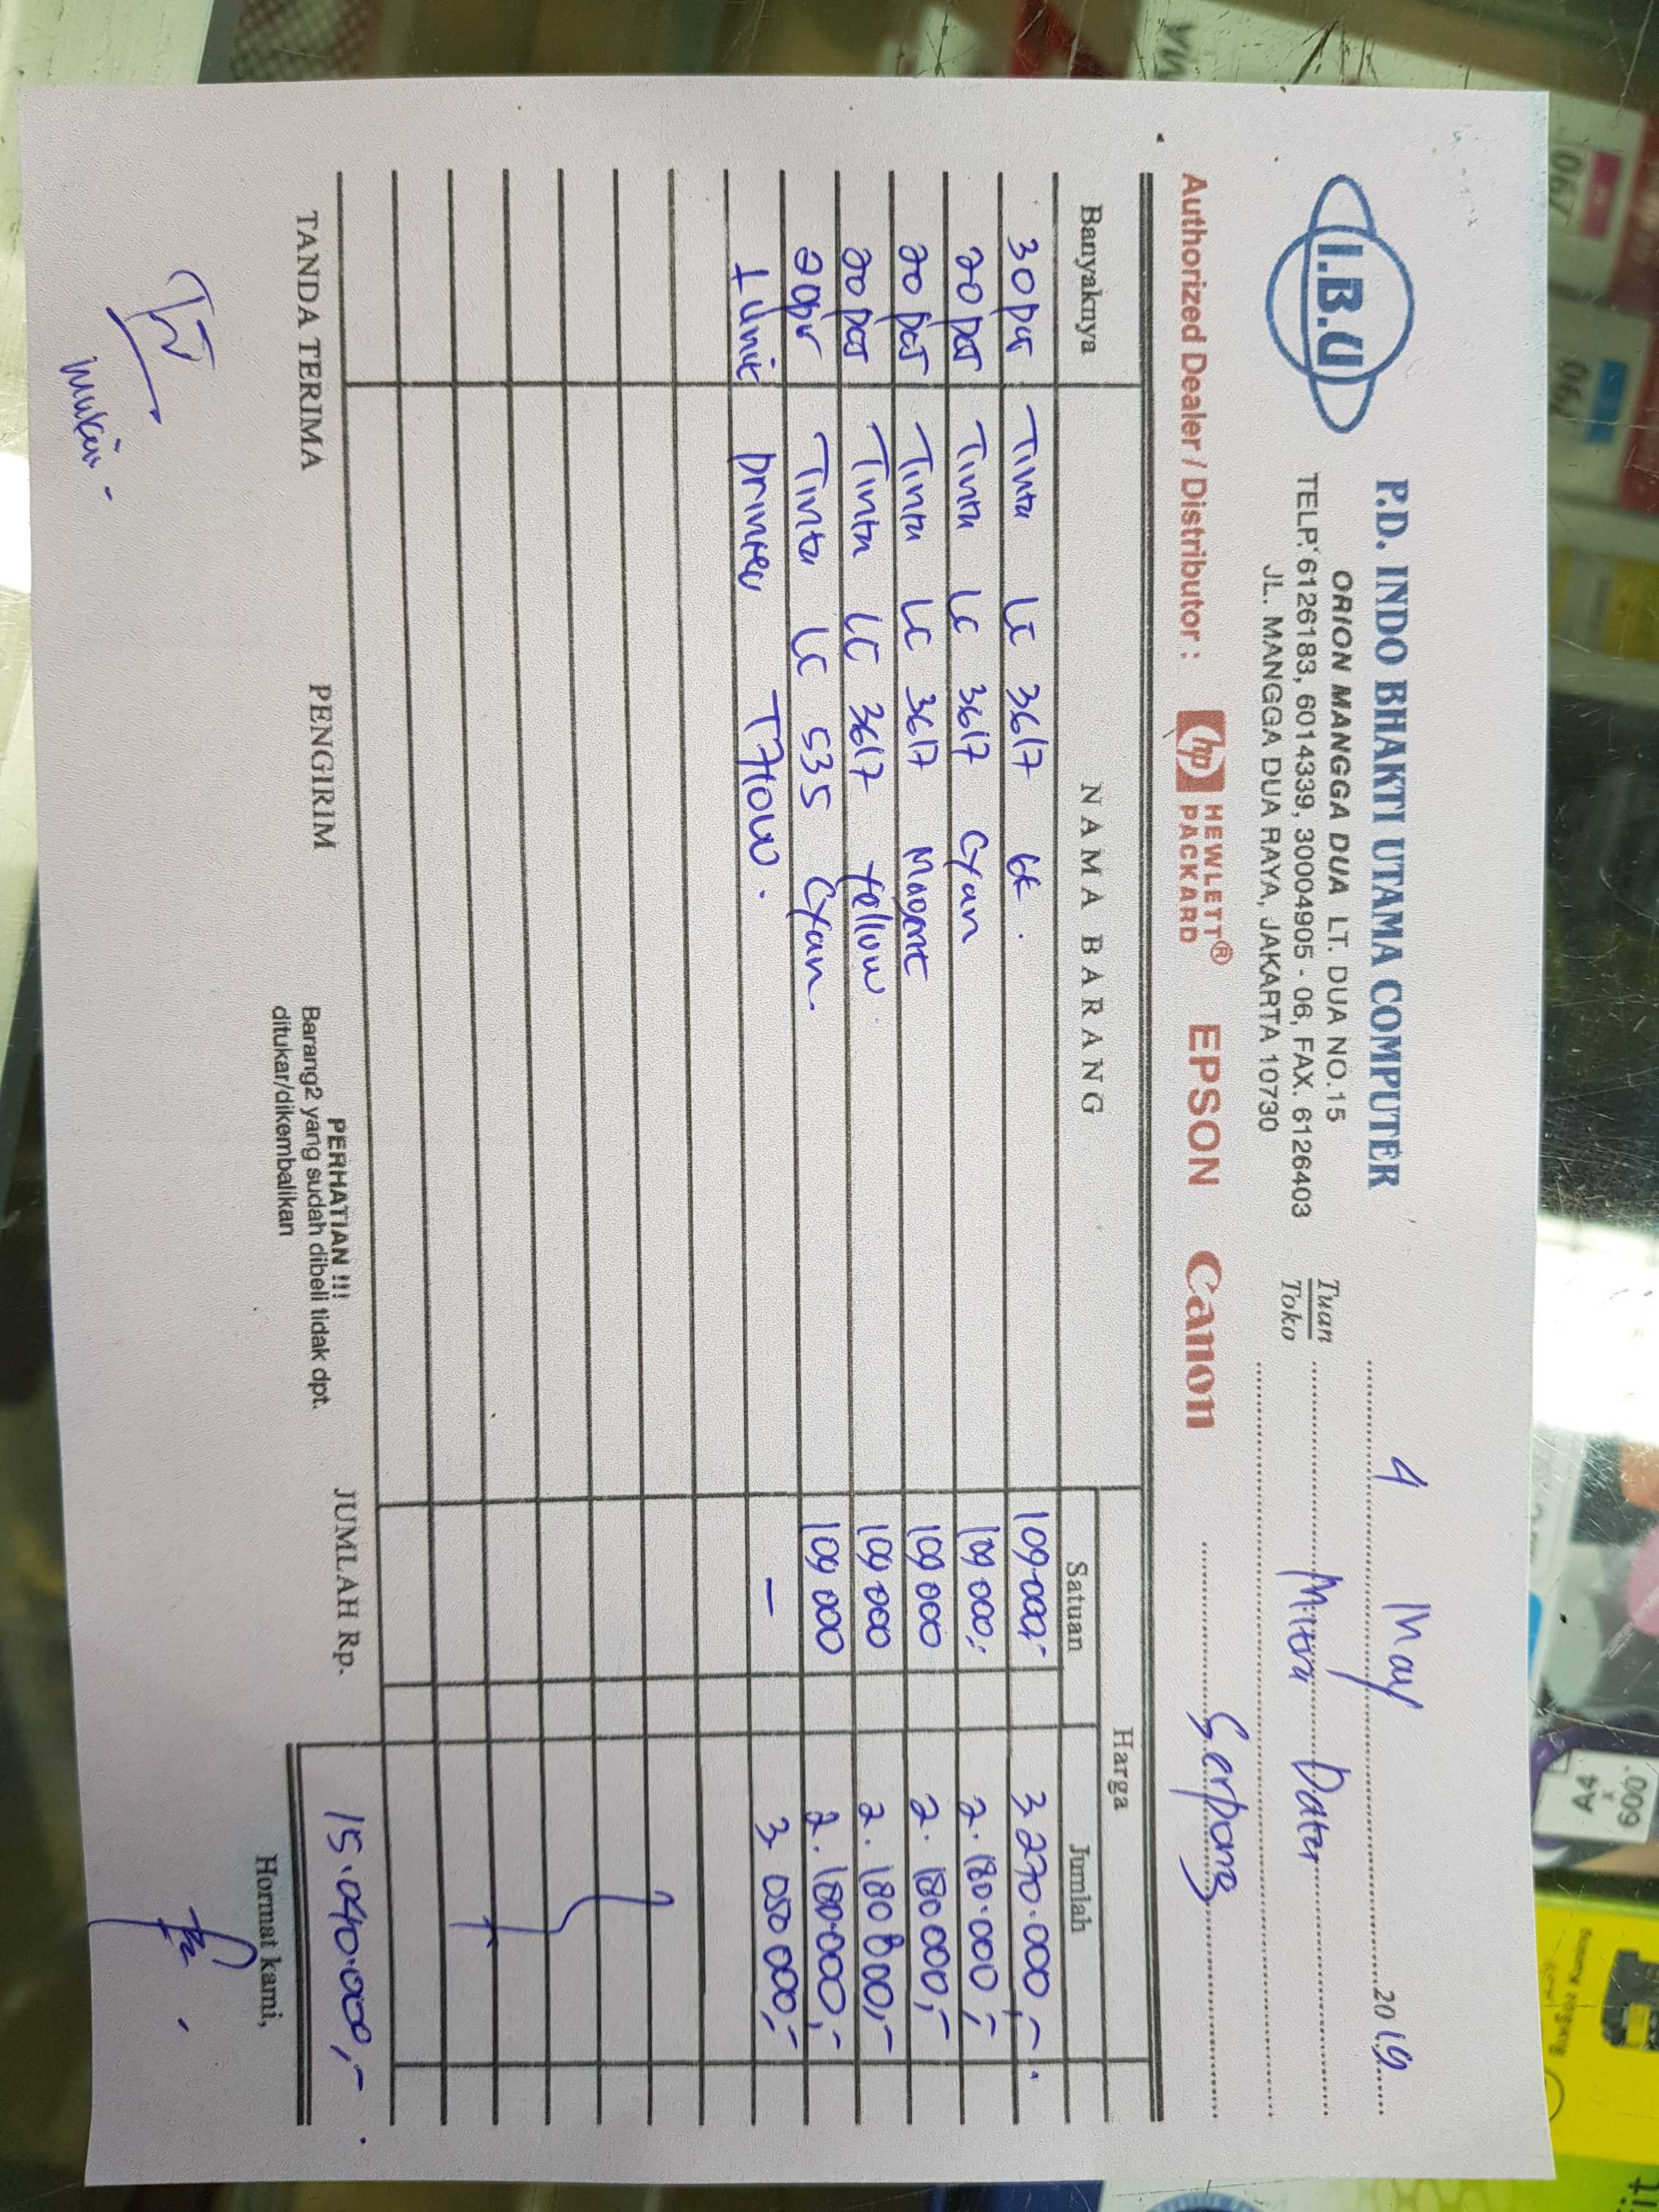 I.B.U
P.D. INDO BHAKTI UTAMA COMPUTER
ORION MANGGA DUA LT. DUA NO.15
TELP. 6126183, 6014339, 30004905 - 06, FAX. 6126403
JL. MANGGA DUA RAYA, JAKARTA 10730
4 May 2019
Tuan
Toko
Mitra Data
Serpong
Authorized Dealer / Distributor : hp HEWLETT® PACKARD EPSON Canon
Banyaknya NAMA BARANG Harga
Satuan Jumlah
30 pcs Tinta LC 3617 BK. 109.000,- 3.270.000,-
20 pcs Tinta LC 3617 Cyan 109.000,- 2.180.000,-
20 pcs Tinta LC 3617 Magent 109.000 2.180.000,-
20 pcs Tinta LC 3617 Yellow 109.000 2.180.000,-
20 pcs Tinta LC 535 Cyan. 109.000 2.180.000,-
1 Unit printer - 3.050.000,-
TANDA TERIMA PENGIRIM JUMLAH Rp. 15.040.000,-
PERHATIAN !!!
Barang2 yang sudah dibeli tidak dpt.
ditukar/dikembalikan
Hormat kami,
A4
x
600
067
067